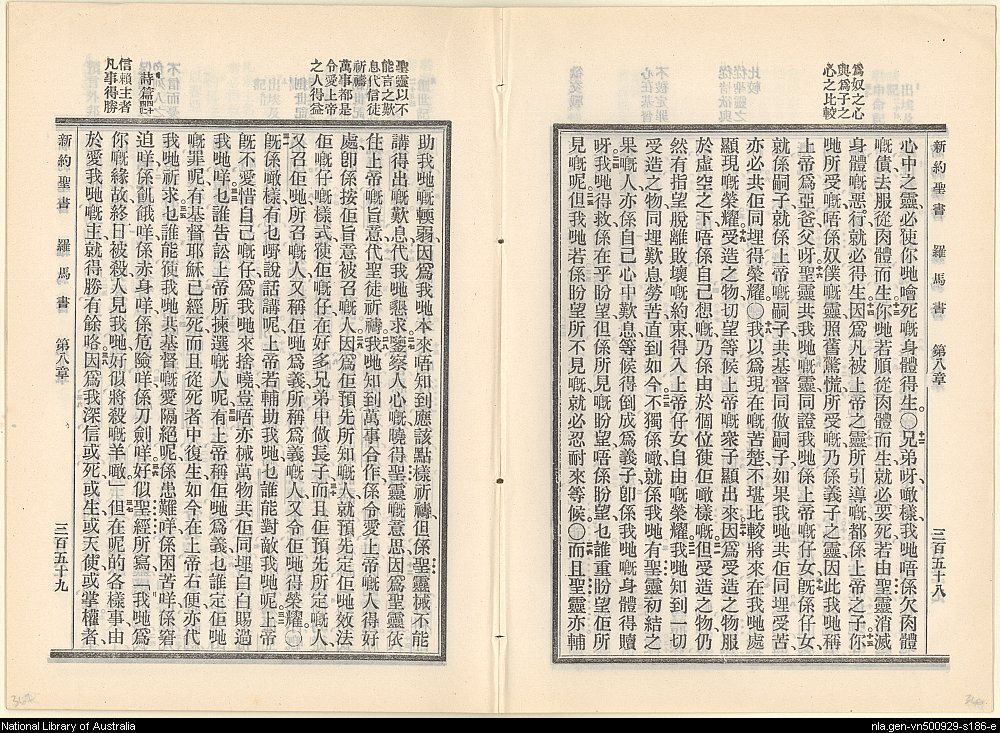 爲奴之心
與爲子之
心之比較
新約聖書 羅馬書 第八章 三百五十八
心中之靈必使你哋噲死嘅身體得生〇兄弟呀噉樣我哋唔係欠肉體
嘅債去服從肉體而生你哋若順從肉體而生就必要死若由聖靈消滅
身體嘅惡行就必得生因爲凡被上帝之靈所引導嘅都係上帝之子你
哋所受嘅唔係奴僕嘅靈照舊驚慌所受嘅乃係義子之靈因此我哋稱
上帝爲亞爸父呀聖靈共我哋嘅靈同證我哋係上帝嘅仔女旣係仔女
就係嗣子就係上帝嘅嗣子共基督同做嗣子如果我哋共佢同埋受苦
亦必共佢同埋得榮耀〇我以爲現在嘅苦楚不堪比較將來在我哋處
顯現嘅榮耀受造之物切望等候上帝嘅衆子顯出來因爲受造之物服
於虛空之下唔係自己想嘅乃係由於個位使佢噉樣嘅但受造之物仍
然有指望脫離敗壞嘅約束得入上帝仔女自由嘅榮耀我哋知到一切
受造之物同埋歎息勞苦直到如今不獨係噉就係我哋有聖靈初結之
果嘅人亦係自己心中歎息等候得倒成爲義子卽係我哋嘅身體得贖
呀我哋得救係在乎盼望但係所見嘅盼望唔係盼望乜誰重盼望佢所
見嘅呢但我哋若係盼望所不見嘅就必忍耐來等候〇而且聖靈亦輔
聖靈以不
能言之歎
息代信徒
祈禱
萬事都是
令愛上帝
之人得益
詩篇四四
信賴主者
凡事得勝
助我哋嘅輭弱因爲我哋本來唔知到應該點樣祈禱但係聖靈械不能
講得出嘅歎息代我哋懇求鑒察人心嘅曉得聖靈嘅意思因爲聖靈依
住上帝嘅旨意代聖徒祈禱我哋知到萬事合作係令愛上帝嘅人得好
處卽係按佢旨意被召嘅人因爲佢預先所知嘅人就預先定佢哋效法
佢嘅仔嘅樣式使佢嘅仔在好多兄弟中做長子而且佢預先所定嘅人
又召佢哋所召嘅人又稱佢哋爲義所稱爲義嘅人又令佢哋得榮耀〇
旣係噉樣有乜嘢說話講呢上帝若輔助我哋乜誰能對敵我哋呢上帝
旣不愛惜自己嘅仔爲我哋衆捨曉豈唔亦械萬物共佢同埋白白賜過
我哋咩乜誰告訟上帝所揀選嘅人呢有上帝稱佢哋爲義乜誰定佢哋
嘅罪呢有基督耶穌已經死而且從死者中復生如今在上帝右便亦代
我哋祈求乜誰能使我哋共基督嘅愛隔絕呢係患難咩係困苦咩係窘
迫咩係飢餓咩係赤身咩係危險咩係刀劍咩好似聖經所寫「我哋爲
你嘅緣故終日被殺人見我哋好似將殺嘅羊噉」但在呢的各樣事由
於愛我哋嘅主就得勝有餘咯因爲我深信或死或生或天使或掌權者
新約聖書 羅馬書 第八章 三百五十九
National Library of Australia
nla.gen-vn500929-s186-e